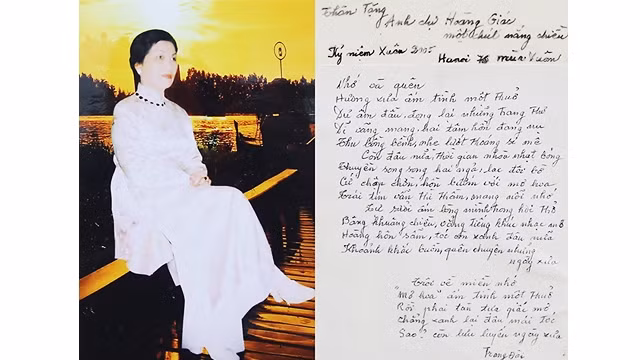 Thân Tặng
Anh chị Hoàng Giác
một chút nắng chiều
Kỷ niệm Xuân 2005
Hanoi mùa Xuân
Nhớ và quên
Hương xưa ấm tình một Thuở
Dư âm đâu, đọng lại những Trang Thơ
Vĩ cầm mang hai tâm hồn đang ru
Thu bồng bềnh, nhẹ lướt Hoang si mê
Còn đâu nữa, thời gian nhòa nhạt bóng
Thuyền song song hai ngả, lạc bến bờ
Cứ chập chờn, hồn bướm với mơ hoa
Trái tim vẫn mang nỗi nhớ
sưởi ấm lòng mình trong hơi Thở
Bâng khuâng chiều, vẳng tiếng khúc nhạc mơ
Hoàng hôn sẫm, tóc còn xanh đâu nữa
Khoảnh khắc buồn, quên chuyện những
ngày xưa
Trôi về miền nhớ
"Mơ hoa" ấm tình một Thuở
Rồi phai tàn xưa giấc mơ
Chẳng xanh lại đâu mái tóc
Sao? còn lưu luyến ngày xưa